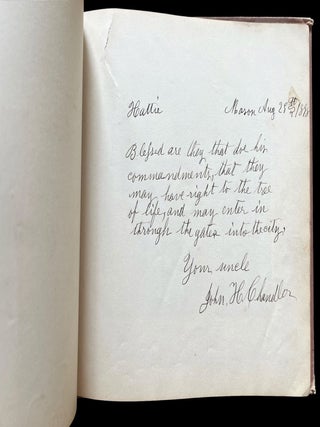 Hattie Mason Aug 25
Blessed are they that doe his
commandments, that they
may have right to the tree
of life, and may enter in
through the gates into the city,
Your uncle
John, H. Chandler